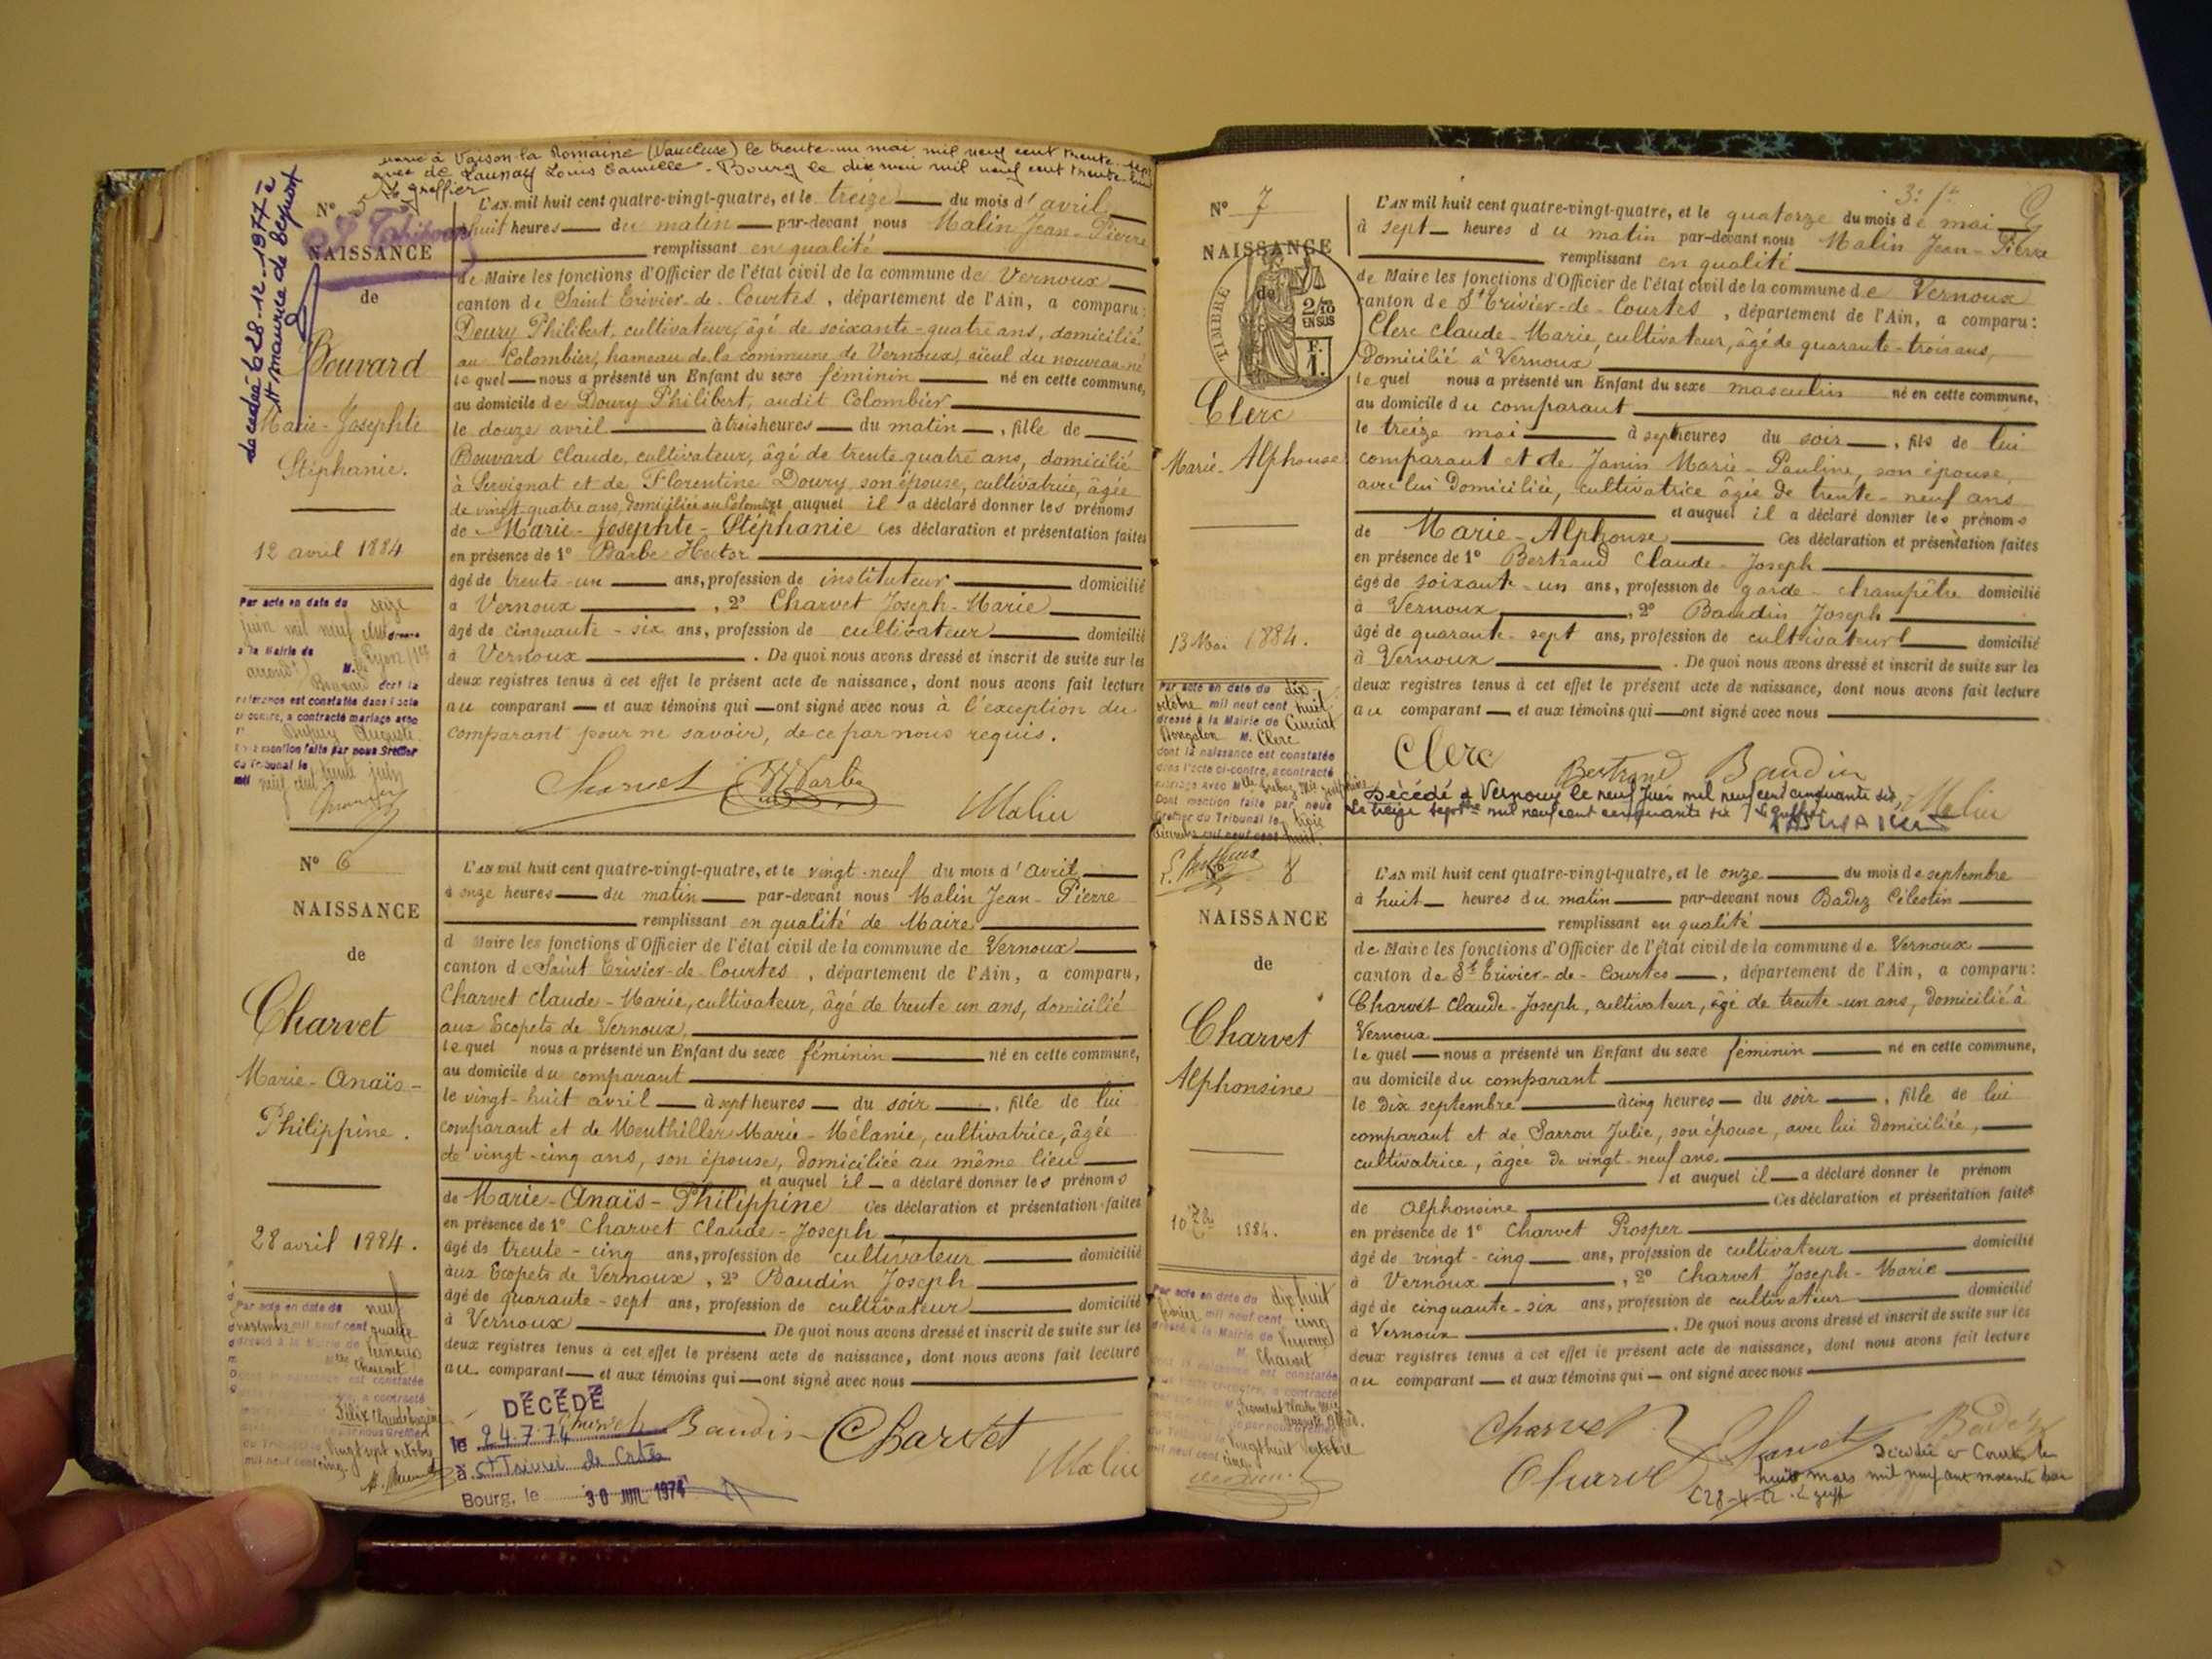 marié à Vaison-la Romaine (Vaucluse) le trente-un mai mil neuf cent trente-sept
avec de Launay Louis Camille - Bourg le dix mai mil neuf cent trente-huit
Le greffier
décédé le 28-12-1977 à
St Maurice de Beynost
N° 5
NAISSANCE
de
Bouvard
Marie-Josephte
Stéphanie.
12 avril 1884
Par acte en date du seize
juin mil neuf cent
à la Mairie de Lyon
arrond.
M.
Bouvard dont la
naissance est constatée dans l'acte
ci-contre, a contracté mariage avec
Dupuy Auguste
mention faite par nous Greffier
du Tribunal le
mil neuf cent trente juin
L'AN mil huit cent quatre-vingt-quatre, et le treize du mois d'avril
à huit heures du matin par-devant nous Malin Jean-Pierre
remplissant en qualité
de Maire les fonctions d'Officier de l'état civil de la commune de Vernoux
canton de Saint Trivier-de-Courtes, département de l'Ain, a comparu:
Doury Philibert, cultivateur, âgé de soixante-quatre ans, domicilié
au Colombier, hameau de la commune de Vernoux, aïeul du nouveau-né
lequel nous a présenté un Enfant du sexe féminin né en cette commune,
au domicile de Doury Philibert, audit Colombier
le douze avril à trois heures du matin, fille de
Bouvard Claude, cultivateur, âgé de trente quatre ans, domicilié
à Servignat et de Florentine Doury son épouse, cultivatrice, âgée
de vingt-quatre ans, domiciliée au Colombier auquel il a déclaré donner les prénoms
de Marie-Josephte-Stéphanie Ces déclaration et présentation faites
en présence de 1° Barbe Hector
âgé de trente-un ans, profession de instituteur domicilié
à Vernoux, 2° Charvet Joseph-Marie
âgé de cinquante-six ans, profession de cultivateur domicilié
à Vernoux. De quoi nous avons dressé et inscrit de suite sur les
deux registres tenus à cet effet le présent acte de naissance, dont nous avons fait lecture
au comparant et aux témoins qui ont signé avec nous à l'exception du
comparant pour ne savoir, de ce par nous requis.
Charvet H Barbe
Malin
N° 6
NAISSANCE
de
Charvet
Marie-Anaïs-
Philippine.
28 avril 1884.
Par acte en date du neuf
mil neuf cent quatre
dressé à la Mairie de Vernoux
Mlle Charvet
dont la naissance est constatée
a contracté
Félix Claude
par nous Greffier
du Tribunal vingt sept octobre
mil neuf cent cinq
L'AN mil huit cent quatre-vingt-quatre, et le vingt-neuf du mois d'avril
à onze heures du matin par-devant nous Malin Jean-Pierre
remplissant en qualité de Maire
d Maire les fonctions d'Officier de l'état civil de la commune de Vernoux
canton de Saint Trivier-de-Courtes, département de l'Ain, a comparu,
Charvet Claude-Marie, cultivateur, âgé de trente un ans, domicilié
aux Ecopets de Vernoux
lequel nous a présenté un Enfant du sexe féminin né en cette commune,
au domicile du comparant
le vingt-huit avril à sept heures du soir, fille de lui
comparant et de Menthiller Marie-Mélanie, cultivatrice, âgée
de vingt-cinq ans, son épouse, domiciliée au même lieu
et auquel il a déclaré donner les prénoms
de Marie-Anaïs-Philippine Ces déclaration et présentation faites
en présence de 1° Charvet Claude-Joseph
âgé de trente-cinq ans, profession de cultivateur domicilié
aux Ecopets de Vernoux, 2° Baudin Joseph
âgé de quarante-sept ans, profession de cultivateur domicilié
à Vernoux De quoi nous avons dressé et inscrit de suite sur les
deux registres tenus à cet effet le présent acte de naissance, dont nous avons fait lecture
au comparant et aux témoins qui ont signé avec nous
DÉCÉDÉ
le 24.7.74 Baudin Charvet
à St Trivier de Crtes Malin
Bourg, le 30 JUIL 1974
3e f.
N° 7
NAISSANCE
de
TIMBRE
2/10
EN SUS
F.
1.
Clerc
Marie-Alphonse
13 Mai 1884.
Par acte en date du dix
octobre mil neuf cent huit
dressé à la Mairie de Curciat
Dongalon M. Clerc
dont la naissance est constatée
dans l'acte ci-contre, a contracté
mariage avec Mlle
Dont mention faite par nous
Greffier du Tribunal le treize
mil neuf cent huit.
L'AN mil huit cent quatre-vingt-quatre, et le quatorze du mois de mai
à sept heures du matin par-devant nous Malin Jean-Pierre
remplissant en qualité
de Maire les fonctions d'Officier de l'état civil de la commune de Vernoux
canton de St Trivier-de-Courtes, département de l'Ain, a comparu:
Clerc Claude-Marie, cultivateur, âgé de quarante-trois ans,
Domicilié à Vernoux
lequel nous a présenté un Enfant du sexe masculin né en cette commune,
au domicile du comparant
le treize mai à sept heures du soir, fils de lui
comparant et de Janin Marie-Pauline, son épouse,
avec lui Domiciliée, cultivatrice âgée de trente-neuf ans
et auquel il a déclaré donner les prénoms
de Marie-Alphonse Ces déclaration et présentation faites
en présence de 1° Bertrand Claude-Joseph
âgé de soixante-un ans, profession de garde-champêtre domicilié
à Vernoux, 2° Baudin Joseph
âgé de quarante-sept ans, profession de cultivateur domicilié
à Vernoux. De quoi nous avons dressé et inscrit de suite sur les
deux registres tenus à cet effet le présent acte de naissance, dont nous avons fait lecture
au comparant et aux témoins qui ont signé avec nous
Clerc Bertrand Baudin
Décédé à Vernoux le neuf Juin mil neuf cent cinquante six Malin
Le treize septbre mil neuf cent cinquante six Le greffier
N° 8
NAISSANCE
de
Charvet
Alphonsine
10 7bre 1884.
Par acte en date du dix huit
février mil neuf cent cinq
dressé à la Mairie de Vernoux
M. Charvet
dont la naissance est constatée
a contracté
vingt huit octobre
mil neuf cent cinq
L'AN mil huit cent quatre-vingt-quatre, et le onze du mois de septembre
à huit heures du matin par-devant nous Badez Célestin
remplissant en qualité
de Maire les fonctions d'Officier de l'état civil de la commune de Vernoux
canton de St Trivier-de-Courtes, département de l'Ain, a comparu:
Charvet Claude-Joseph, cultivateur, âgé de trente-un ans, Domicilié à
Vernoux
lequel nous a présenté un Enfant du sexe féminin né en cette commune,
au domicile du comparant
le dix septembre à cinq heures du soir, fille de lui
comparant et de Sarron Julie, son épouse, avec lui Domiciliée,
cultivatrice, âgée de vingt-neuf ans.
et auquel il a déclaré donner le prénom
de Alphonsine Ces déclaration et présentation faites
en présence de 1° Charvet Prosper
âgé de vingt-cinq ans, profession de cultivateur domicilié
à Vernoux, 2° Charvet Joseph-Marie
âgé de cinquante-six ans, profession de cultivateur domicilié
à Vernoux. De quoi nous avons dressé et inscrit de suite sur les
deux registres tenus à cet effet le présent acte de naissance, dont nous avons fait lecture
au comparant et aux témoins qui ont signé avec nous
Charvet Charvet Badez
Charvet Décédée à Courtes le
huit mars mil neuf cent soixante deux